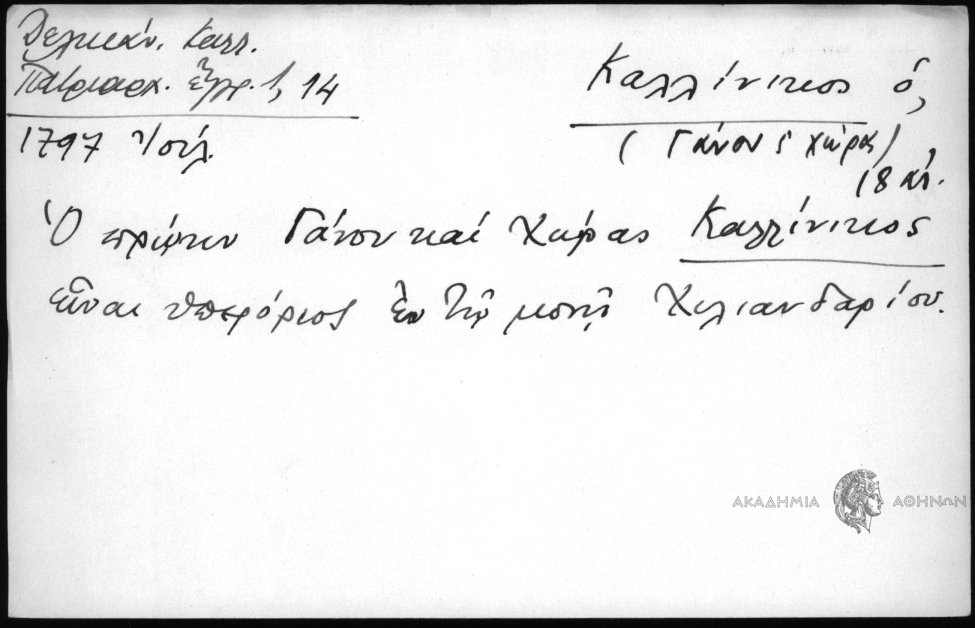 Δελικάν. Καλλ.
Πατριαρχ. ἔγγρ. 1, 14
1797 Ἰούλ.
Καλλίνικος ὁ,
(Γάνου ς χώρας),
18 αἰ.
Ὁ πρώην Γάνου καί Χώρας Καλλίνικος
εἶναι ὑπερόριος ἐν τῇ μονῇ Χιλιανδαρίου.
ΑΚΑΔΗΜΙΑ ΑΘΗΝΩΝ